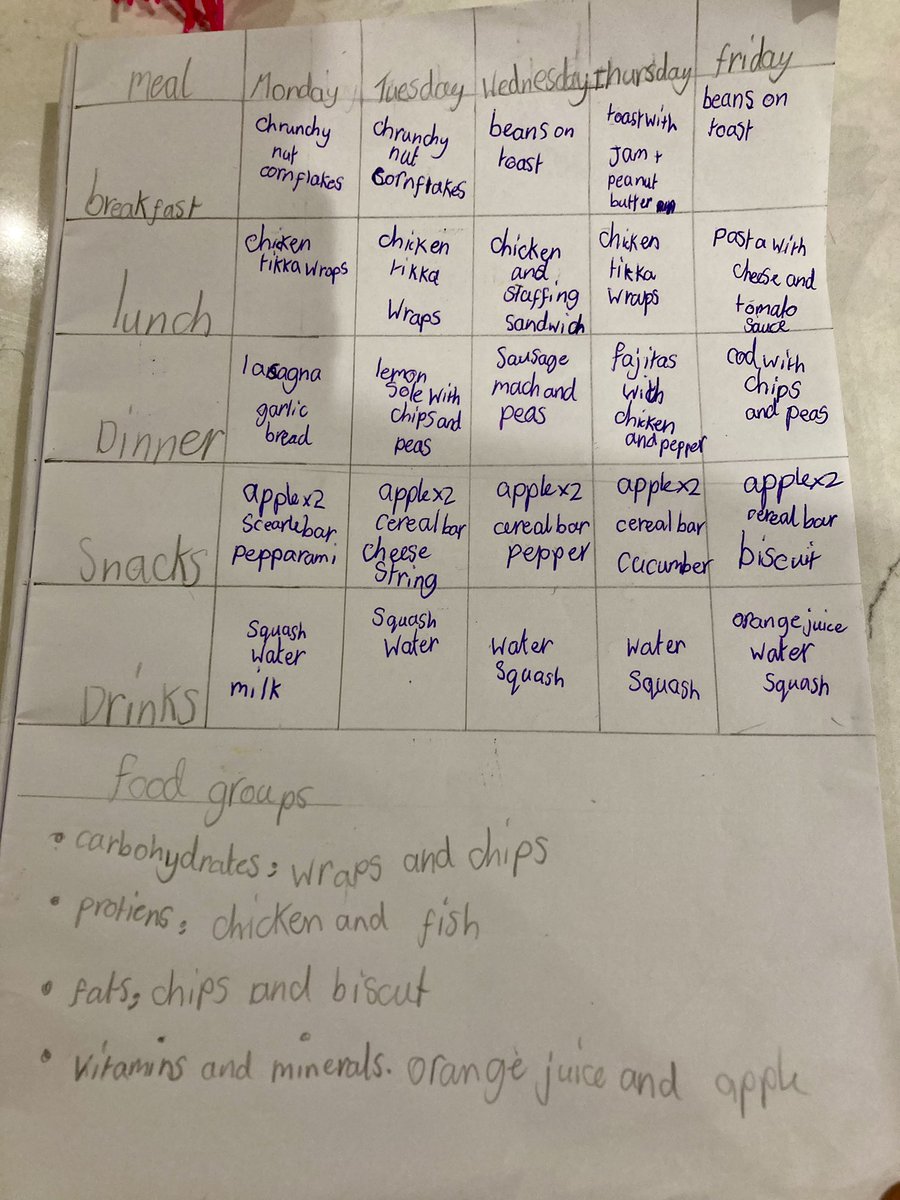 meal Monday Tuesday Wednesday Thursday friday
breakfast
chrunchy
nut
cornflakes
chrunchy
nut
cornflakes
beans on
toast
toast with
Jam +
peanut
butter
beans on
toast
lunch
chicken
tikka wraps
chicken
tikka
wraps
chicken
and
staffing
sandwich
chicken
tikka
wraps
Pasta with
cheese and
tomato
sauce
Dinner
lasagna
garlic
bread
lemon
sole with
chips and
peas
Sausage
mach and
peas
fajitas
with
chicken
and pepper
cod with
chips
and peas
Snacks
apple x2
bar
pepparami
apple x2
cereal bar
cheese
string
apple x2
cereal bar
pepper
apple x2
cereal bar
cucumber
apple x2
cereal bar
biscuit
Drinks
Squash
water
milk
Squash
water
water
Squash
water
Squash
orange juice
water
Squash
food groups
• carbohydrates; wraps and chips
• protiens; chicken and fish
• fats; chips and biscut
• vitamins and minerals. orange juice and apple